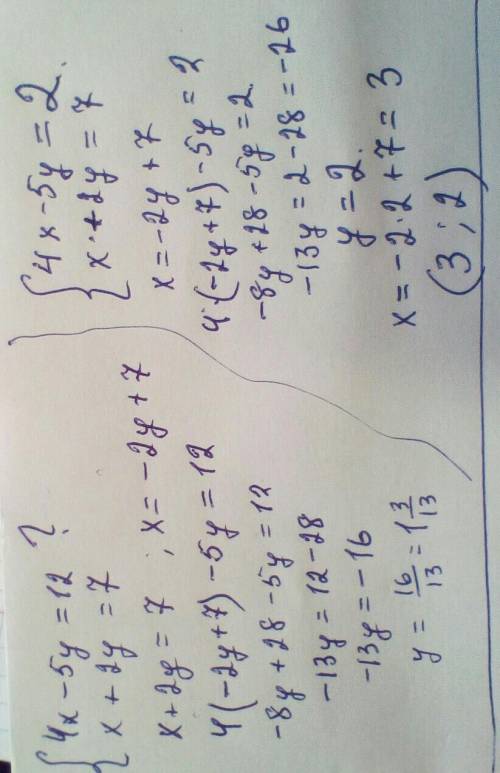 {4x - 5y = 12 ?
x + 2y = 7
x + 2y = 7 ; x = -2y + 7
4(-2y+7) - 5y = 12
-8y + 28 - 5y = 12
-13y = 12 - 28
-13y = -16
y = 16/13 = 1 3/13
{4x - 5y = 2.
x + 2y = 7
x = -2y + 7
4·(-2y+7) - 5y = 2
-8y + 28 - 5y = 2.
-13y = 2 - 28 = -26
y = 2.
x = -2·2 + 7 = 3
(3 ; 2)